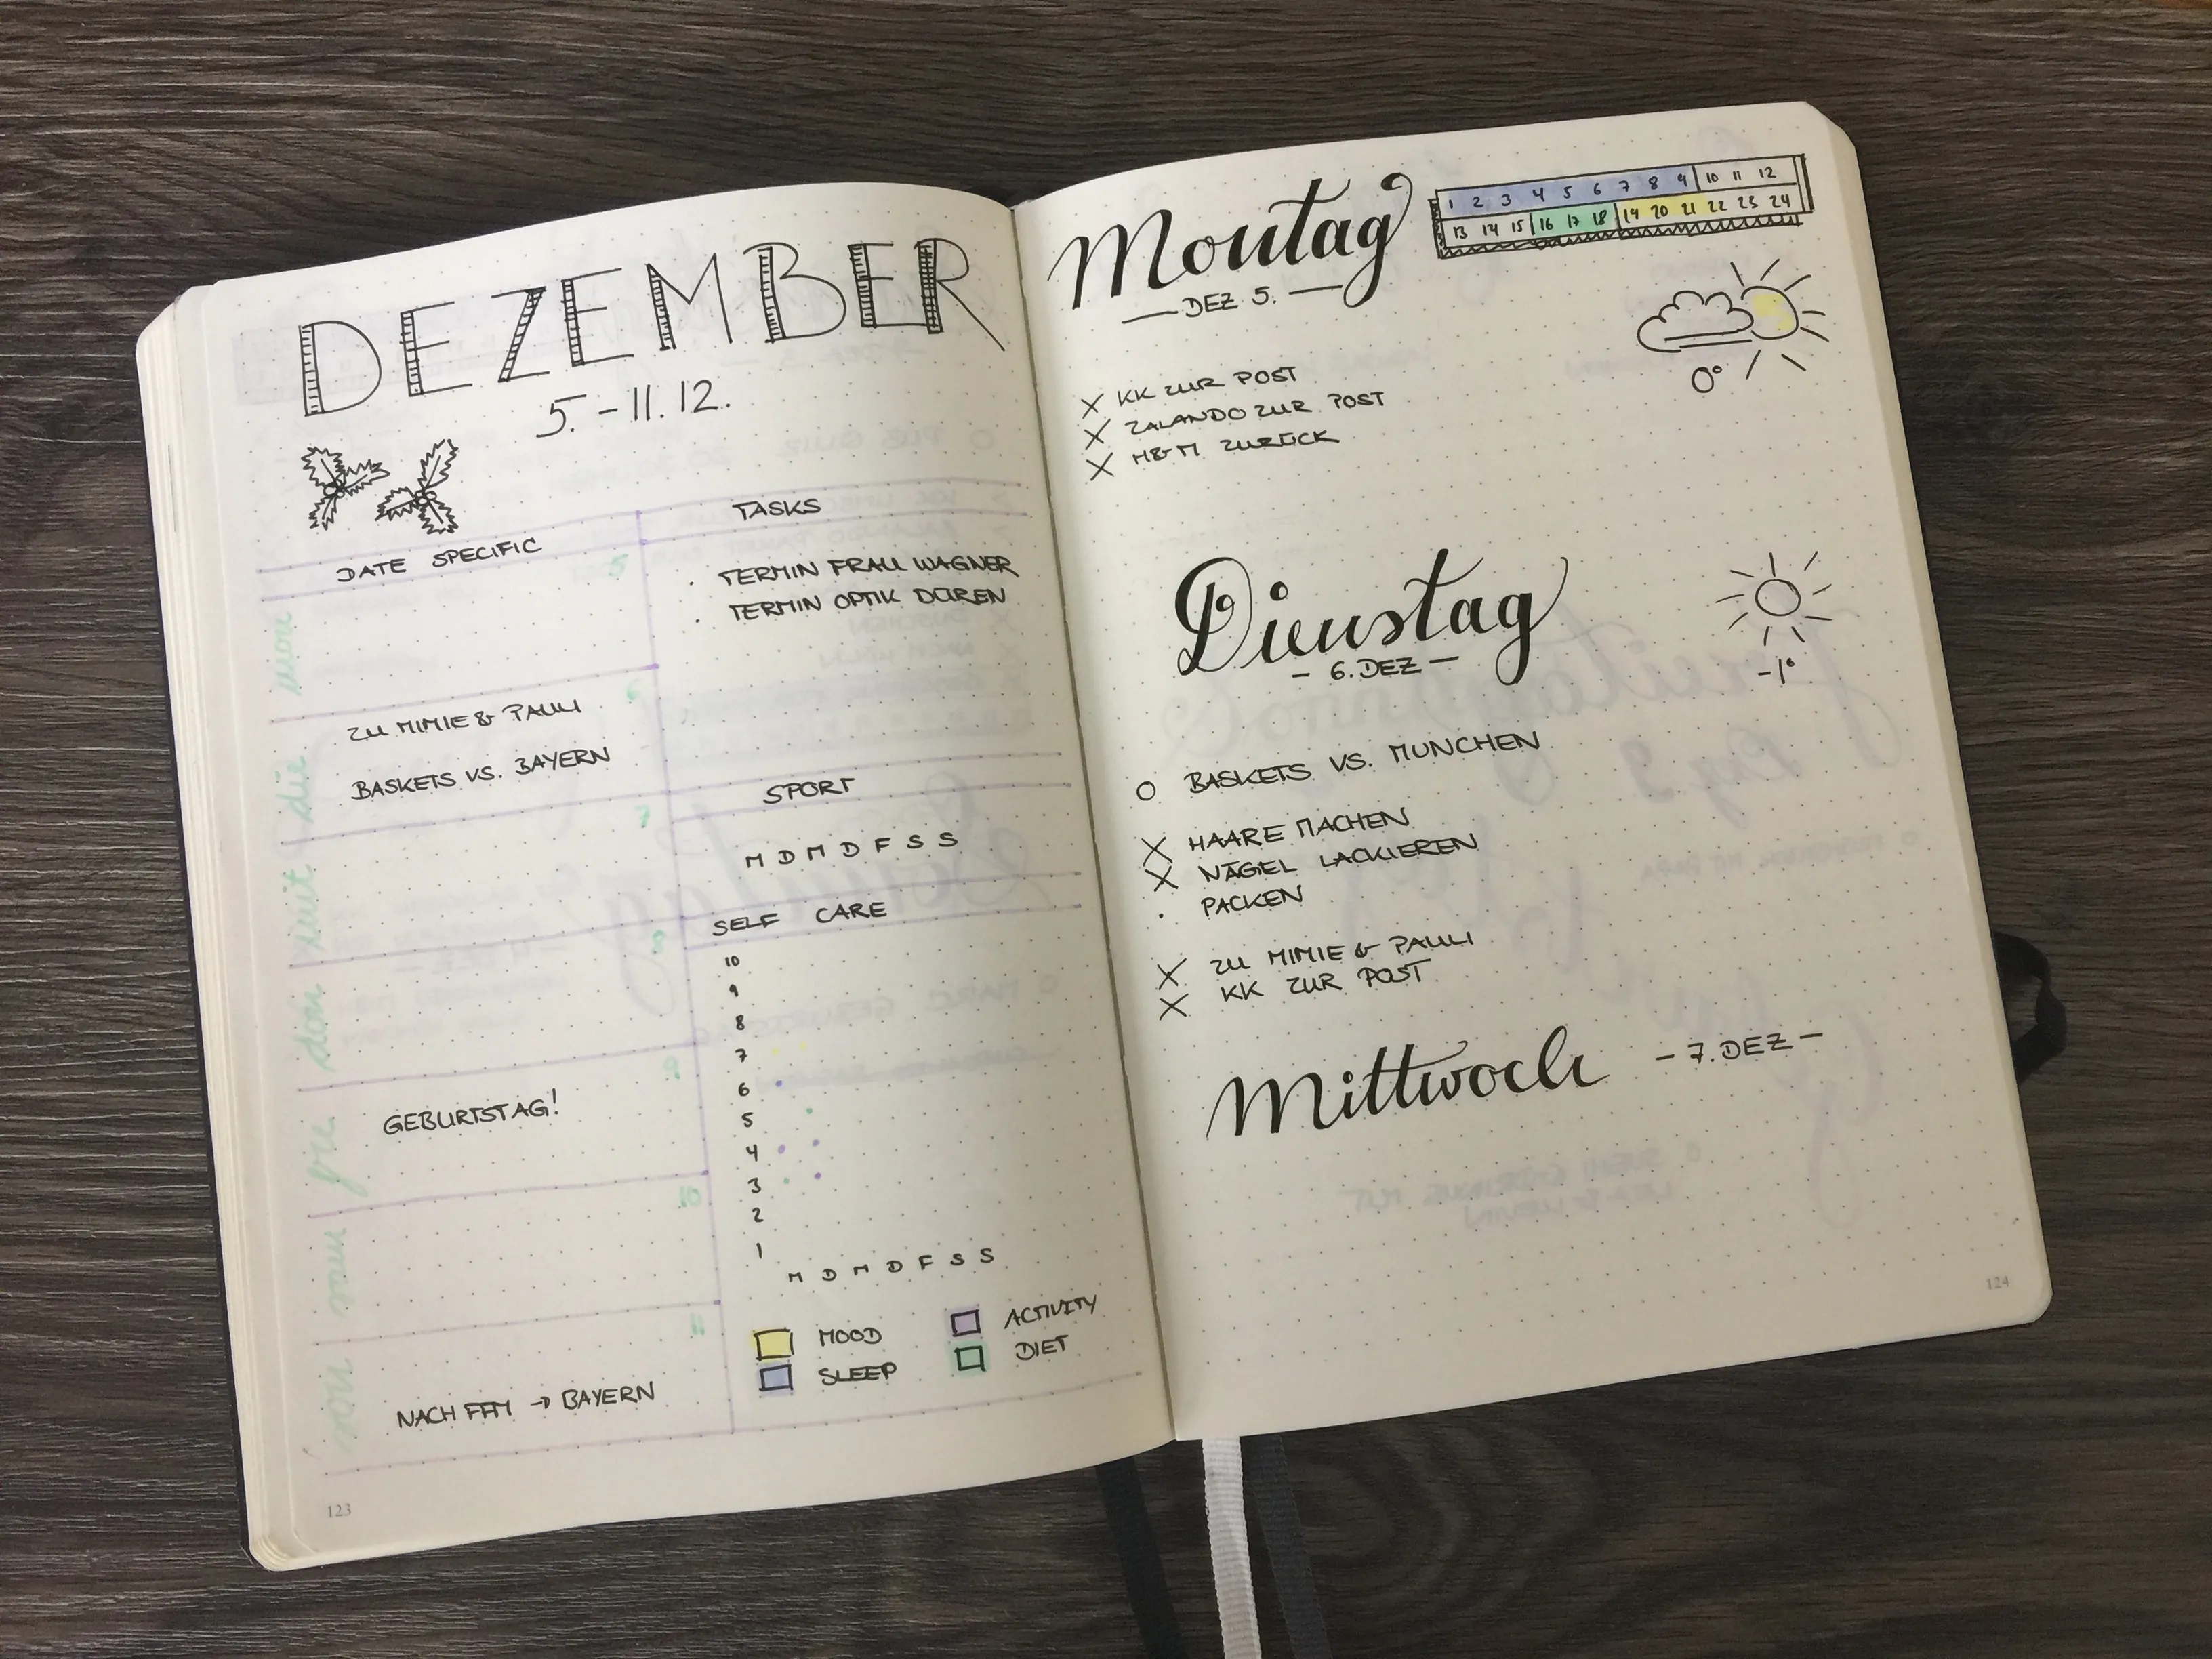 DEZEMBER
5.-11.12.
DATE SPECIFIC
mon
5
die
6
ZU MIMIE & PAULI
BASKETS VS. BAYERN
7
don
8
fre
9
GEBURTSTAG!
10
11
NACH FFM → BAYERN
TASKS
· TERMIN FRAU WAGNER
· TERMIN OPTIK DÜREN
SPORT
M D M D F S S
SELF CARE
10
9
8
7
6
5
4
3
2
1
M D M D F S S
MOOD
ACTIVITY
SLEEP
DIET
123
Montag
— DEZ 5. —
1 2 3 4 5 6 7 8 9 10 11 12
13 14 15 16 17 18 19 20 21 22 23 24
0°
X KK ZUR POST
X ZALANDO ZUR POST
X H&M ZURÜCK
Dienstag
- 6. DEZ -
-1°
O BASKETS VS. MÜNCHEN
X HAARE MACHEN
X NÄGEL LACKIEREN
· PACKEN
X ZU MIMIE & PAULI
X KK ZUR POST
Mittwoch - 7. DEZ -
124